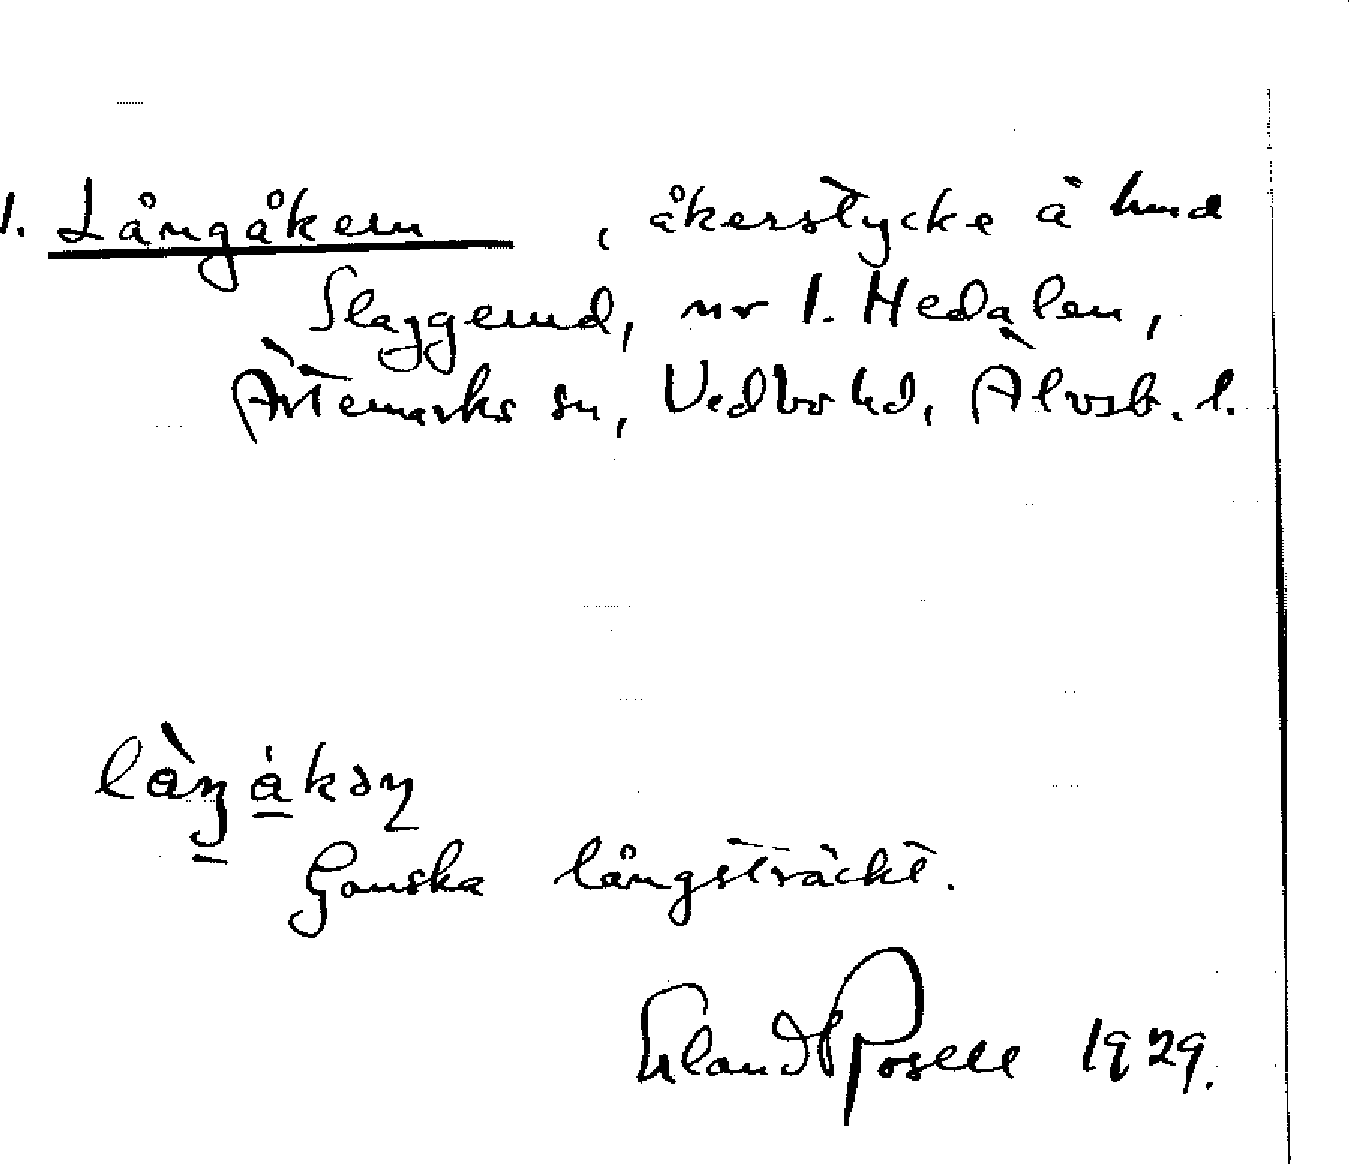 1. Långåkern, åkerstycke å hmd
Slaggerud, nr 1. Hedalen,
Ärtemarks sn, Vedbo hd, Älvsb. l.
làŋákəṇ
Ganska långsträckt.
Erland Rosell 1929.